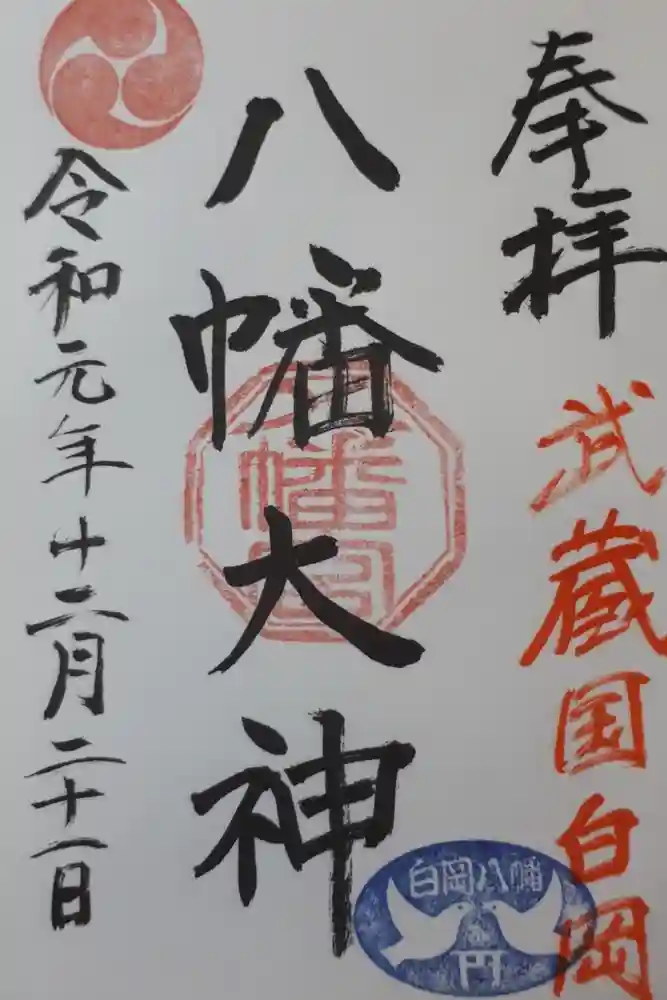 奉拝
武蔵国白岡
八幡大神
八幡宮
白岡八幡
令和元年十二月二十一日